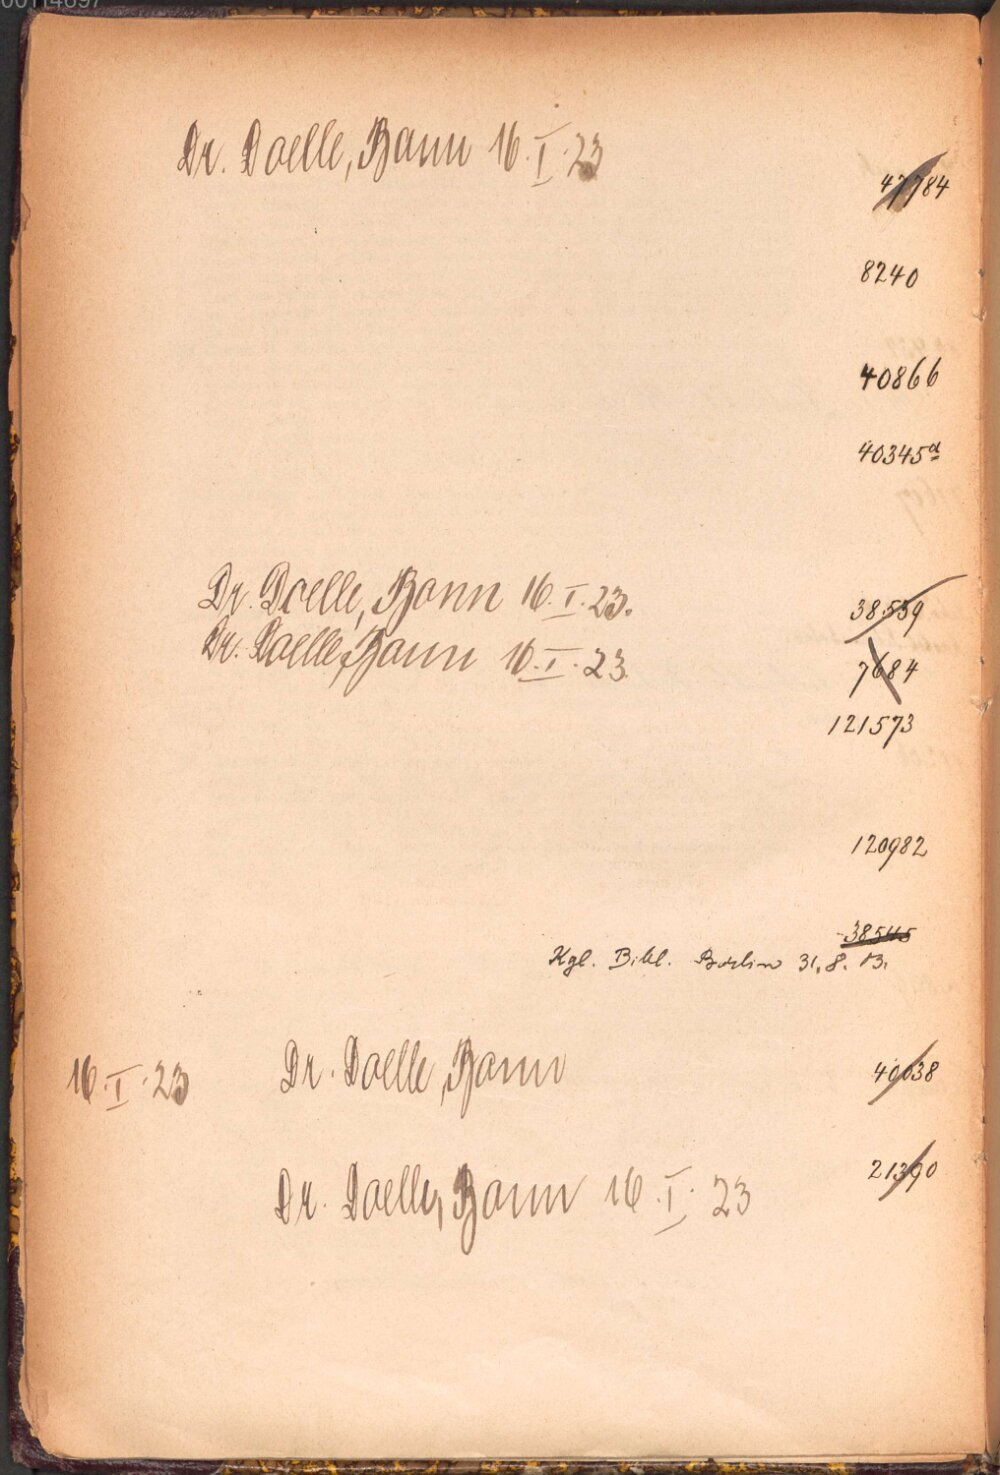 Dr. Doelle, Bonn 16. I. 23
47784
8240
40866
40345a
Dr. Doelle, Bonn 16. I. 23.
38559
Dr. Doelle, Bonn 16. I. 23.
7684
121573
120982
38545
Kgl. Bibl. Berlin 31. 8. 13.
16. I. 23 Dr. Doelle, Bonn
40038
21390
Dr. Doelle, Bonn 16. I. 23